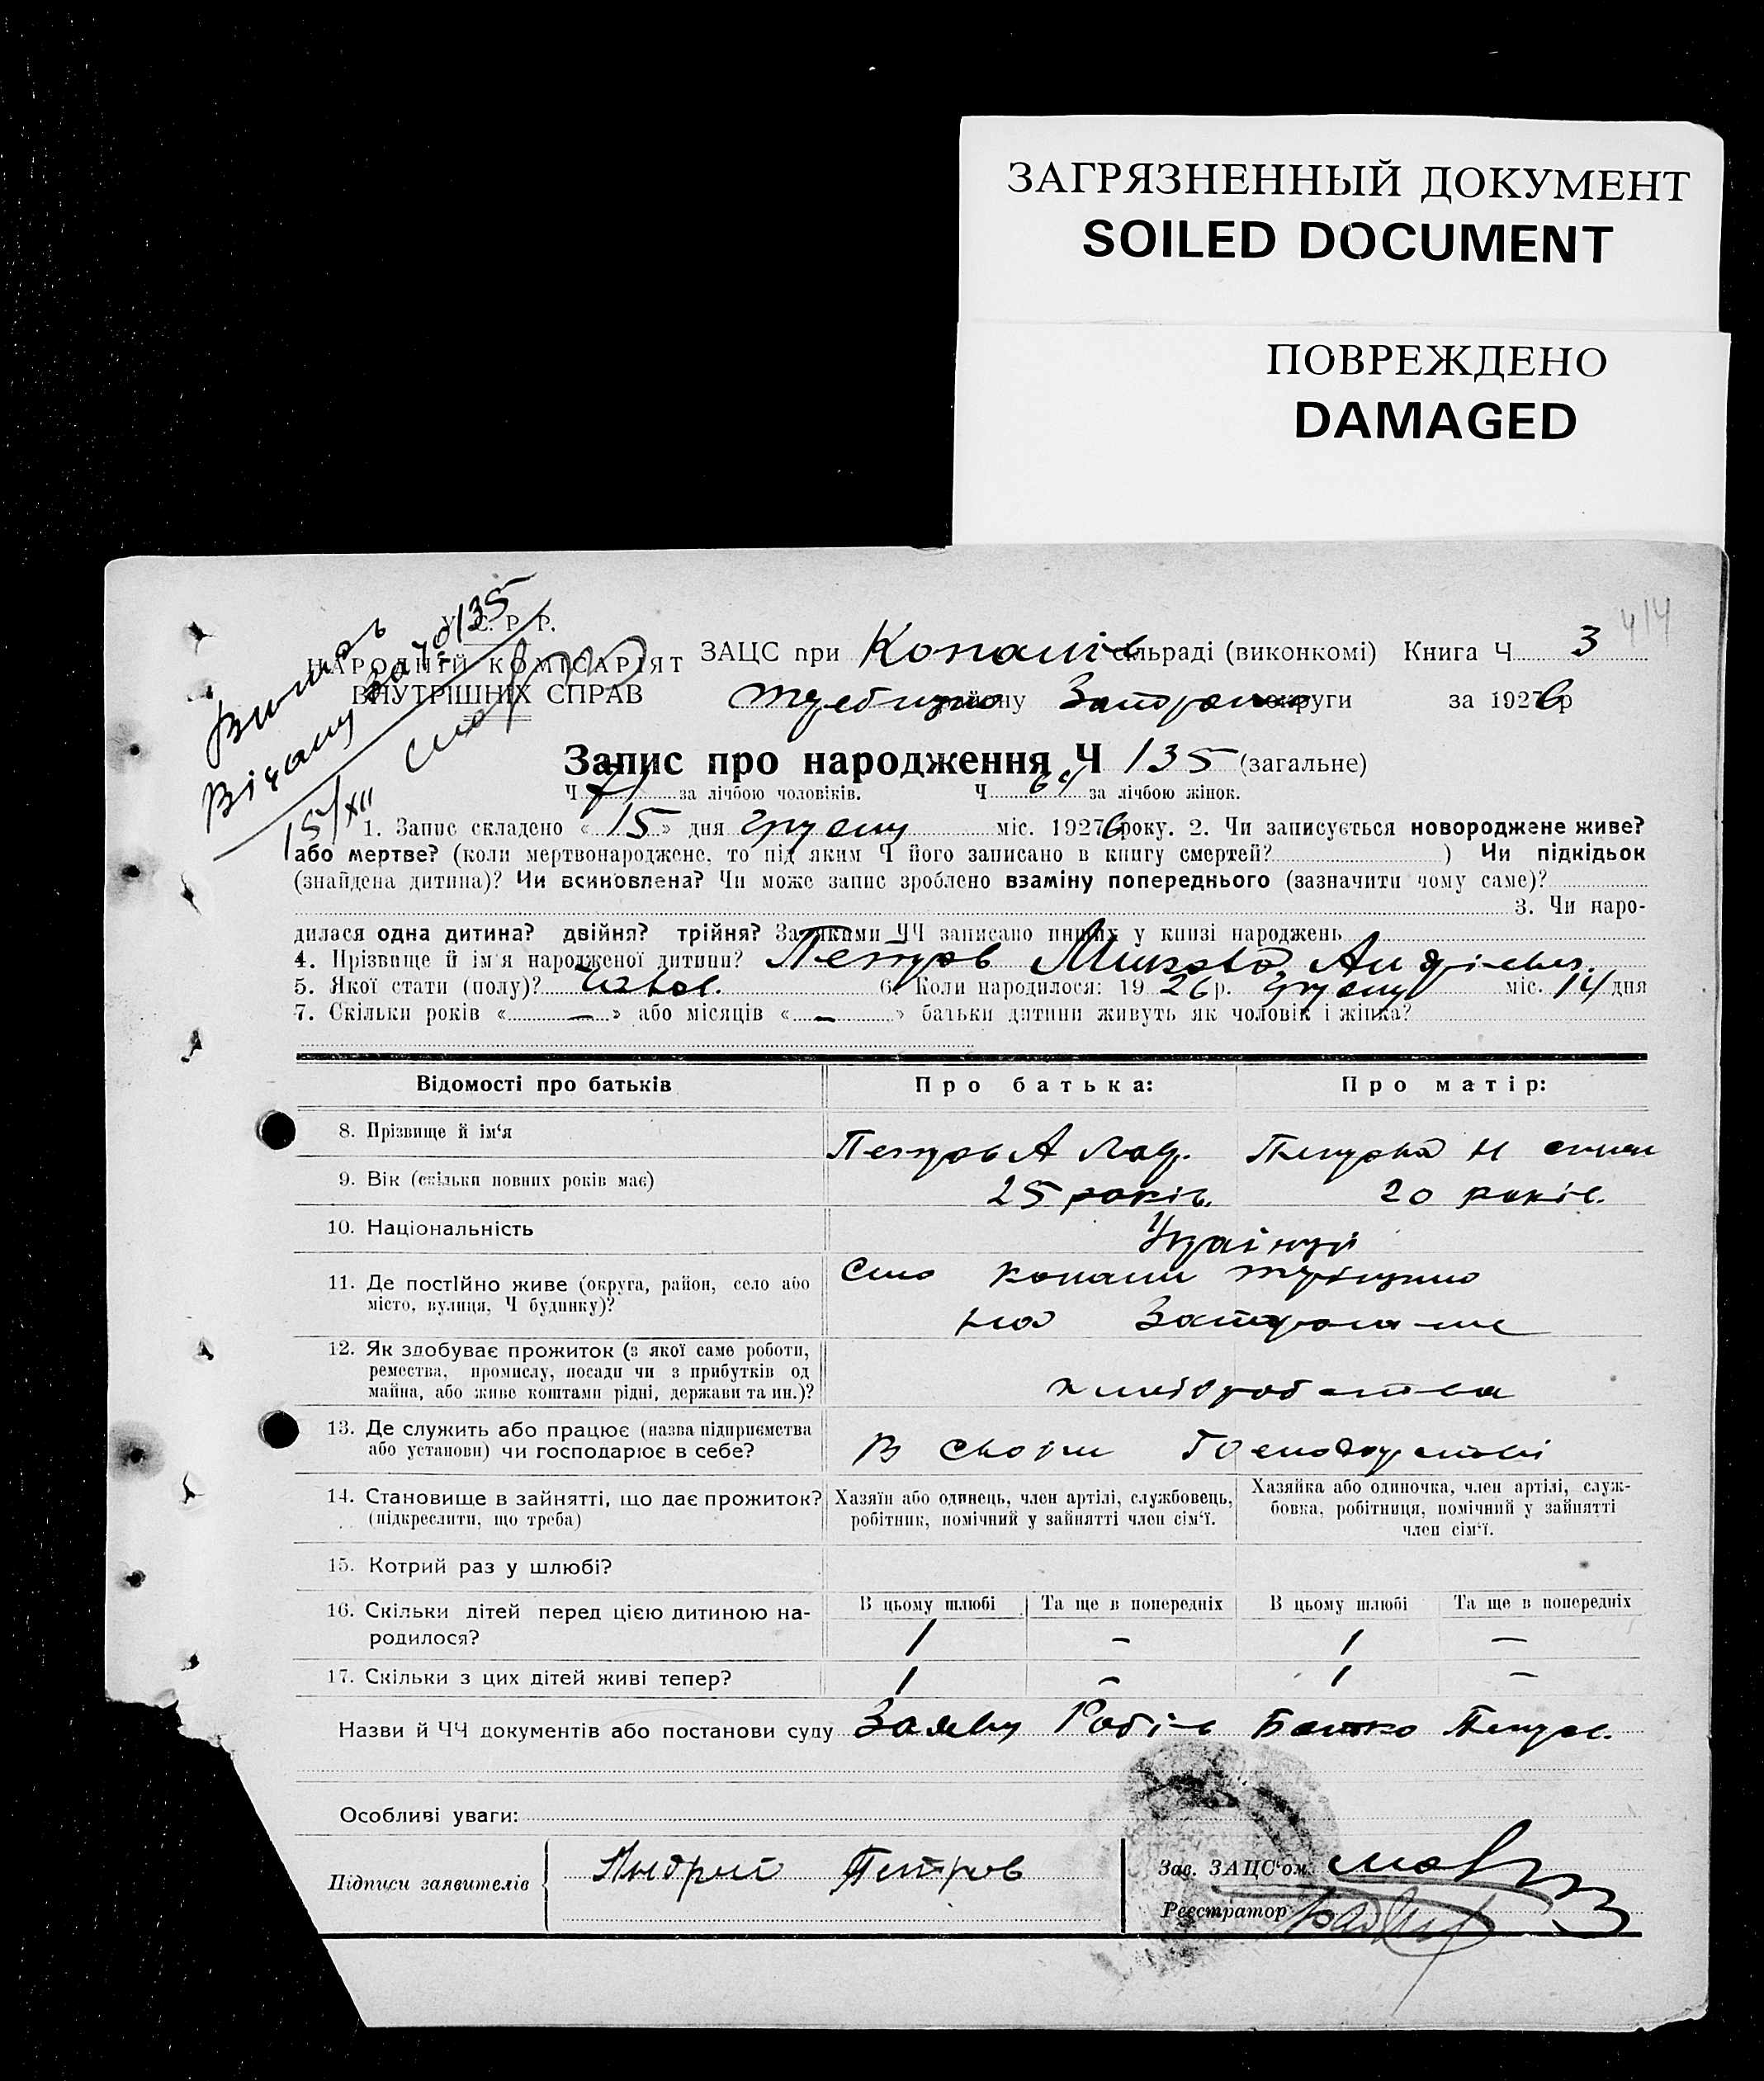 ЗАГРЯЗНЕННЫЙ ДОКУМЕНТ
SOILED DOCUMENT
ПОВРЕЖДЕНО
DAMAGED
414
за № 135
15/XII
У. С. Р. Р.
НАРОДНІЙ КОМІСАРІЯТ
ВНУТРІШНІХ СПРАВ
ЗАЦС при сільраді (виконкомі) Книга Ч 3
району округи за 1926 р
Запис про народження Ч 135 (загальне)
Ч 71 за лічбою чоловіків. Ч 64 за лічбою жінок.
1. Запис складено « 15 » дня грудню міс. 1926 року. 2. Чи записується новороджене живе?
або мертве? (коли мертвонароджене, то під яким Ч його записано в книгу смертей? ) Чи підкідьок
(знайдена дитина)? Чи всиновлена? Чи може запис зроблено взаміну попереднього (зазначити чому саме)?
3. Чи наро-
дилася одна дитина? двійня? трійня? За якими ЧЧ записано инших у книзі народжень
4. Прізвище й ім'я народженої дитини? Петров Микола Андрієвич
5. Якої стати (полу)? чолов. 6. Коли народилося: 1926 р. грудню міс. 14 дня
7. Скільки років « — » або місяців « — » батьки дитини живуть як чоловік і жінка?
Відомості про батьків Про батька: Про матір:
8. Прізвище й ім'я Петров А Петрова Н
9. Вік (скільки повних років має) 25 років. 20 років.
10. Національність Українці
11. Де постійно живе (округа, район, село або
місто, вулиця, Ч будинку)? Село Копани
12. Як здобуває прожиток (з якої саме роботи,
ремества, промислу, посади чи з прибутків од
майна, або живе коштами рідні, держави та ин.)? хліборобства
13. Де служить або працює (назва підприємства
або установи) чи господарює в себе? В своїм Господарстві
14. Становище в зайнятті, що дає прожиток?
(підкреслити, що треба)
Хазяїн або одинець, член артілі, службовець,
робітник, помічний у зайнятті член сім'ї.
Хазяйка або одиночка, член артілі, служ-
бовка, робітниця, помічний у зайнятті
член сім'ї.
15. Котрий раз у шлюбі?
16. Скільки дітей перед цією дитиною на-
родилося?
В цьому шлюбі Та ще в попередніх В цьому шлюбі Та ще в попередніх
1 — 1 —
17. Скільки з цих дітей живі тепер? 1 — 1 —
Назви й ЧЧ документів або постанови суду Заяву Робів Батько Петров
Особливі уваги:
Підписи заявителів Андрий Петров
Зав. ЗАЦС'ом
Реєстратор